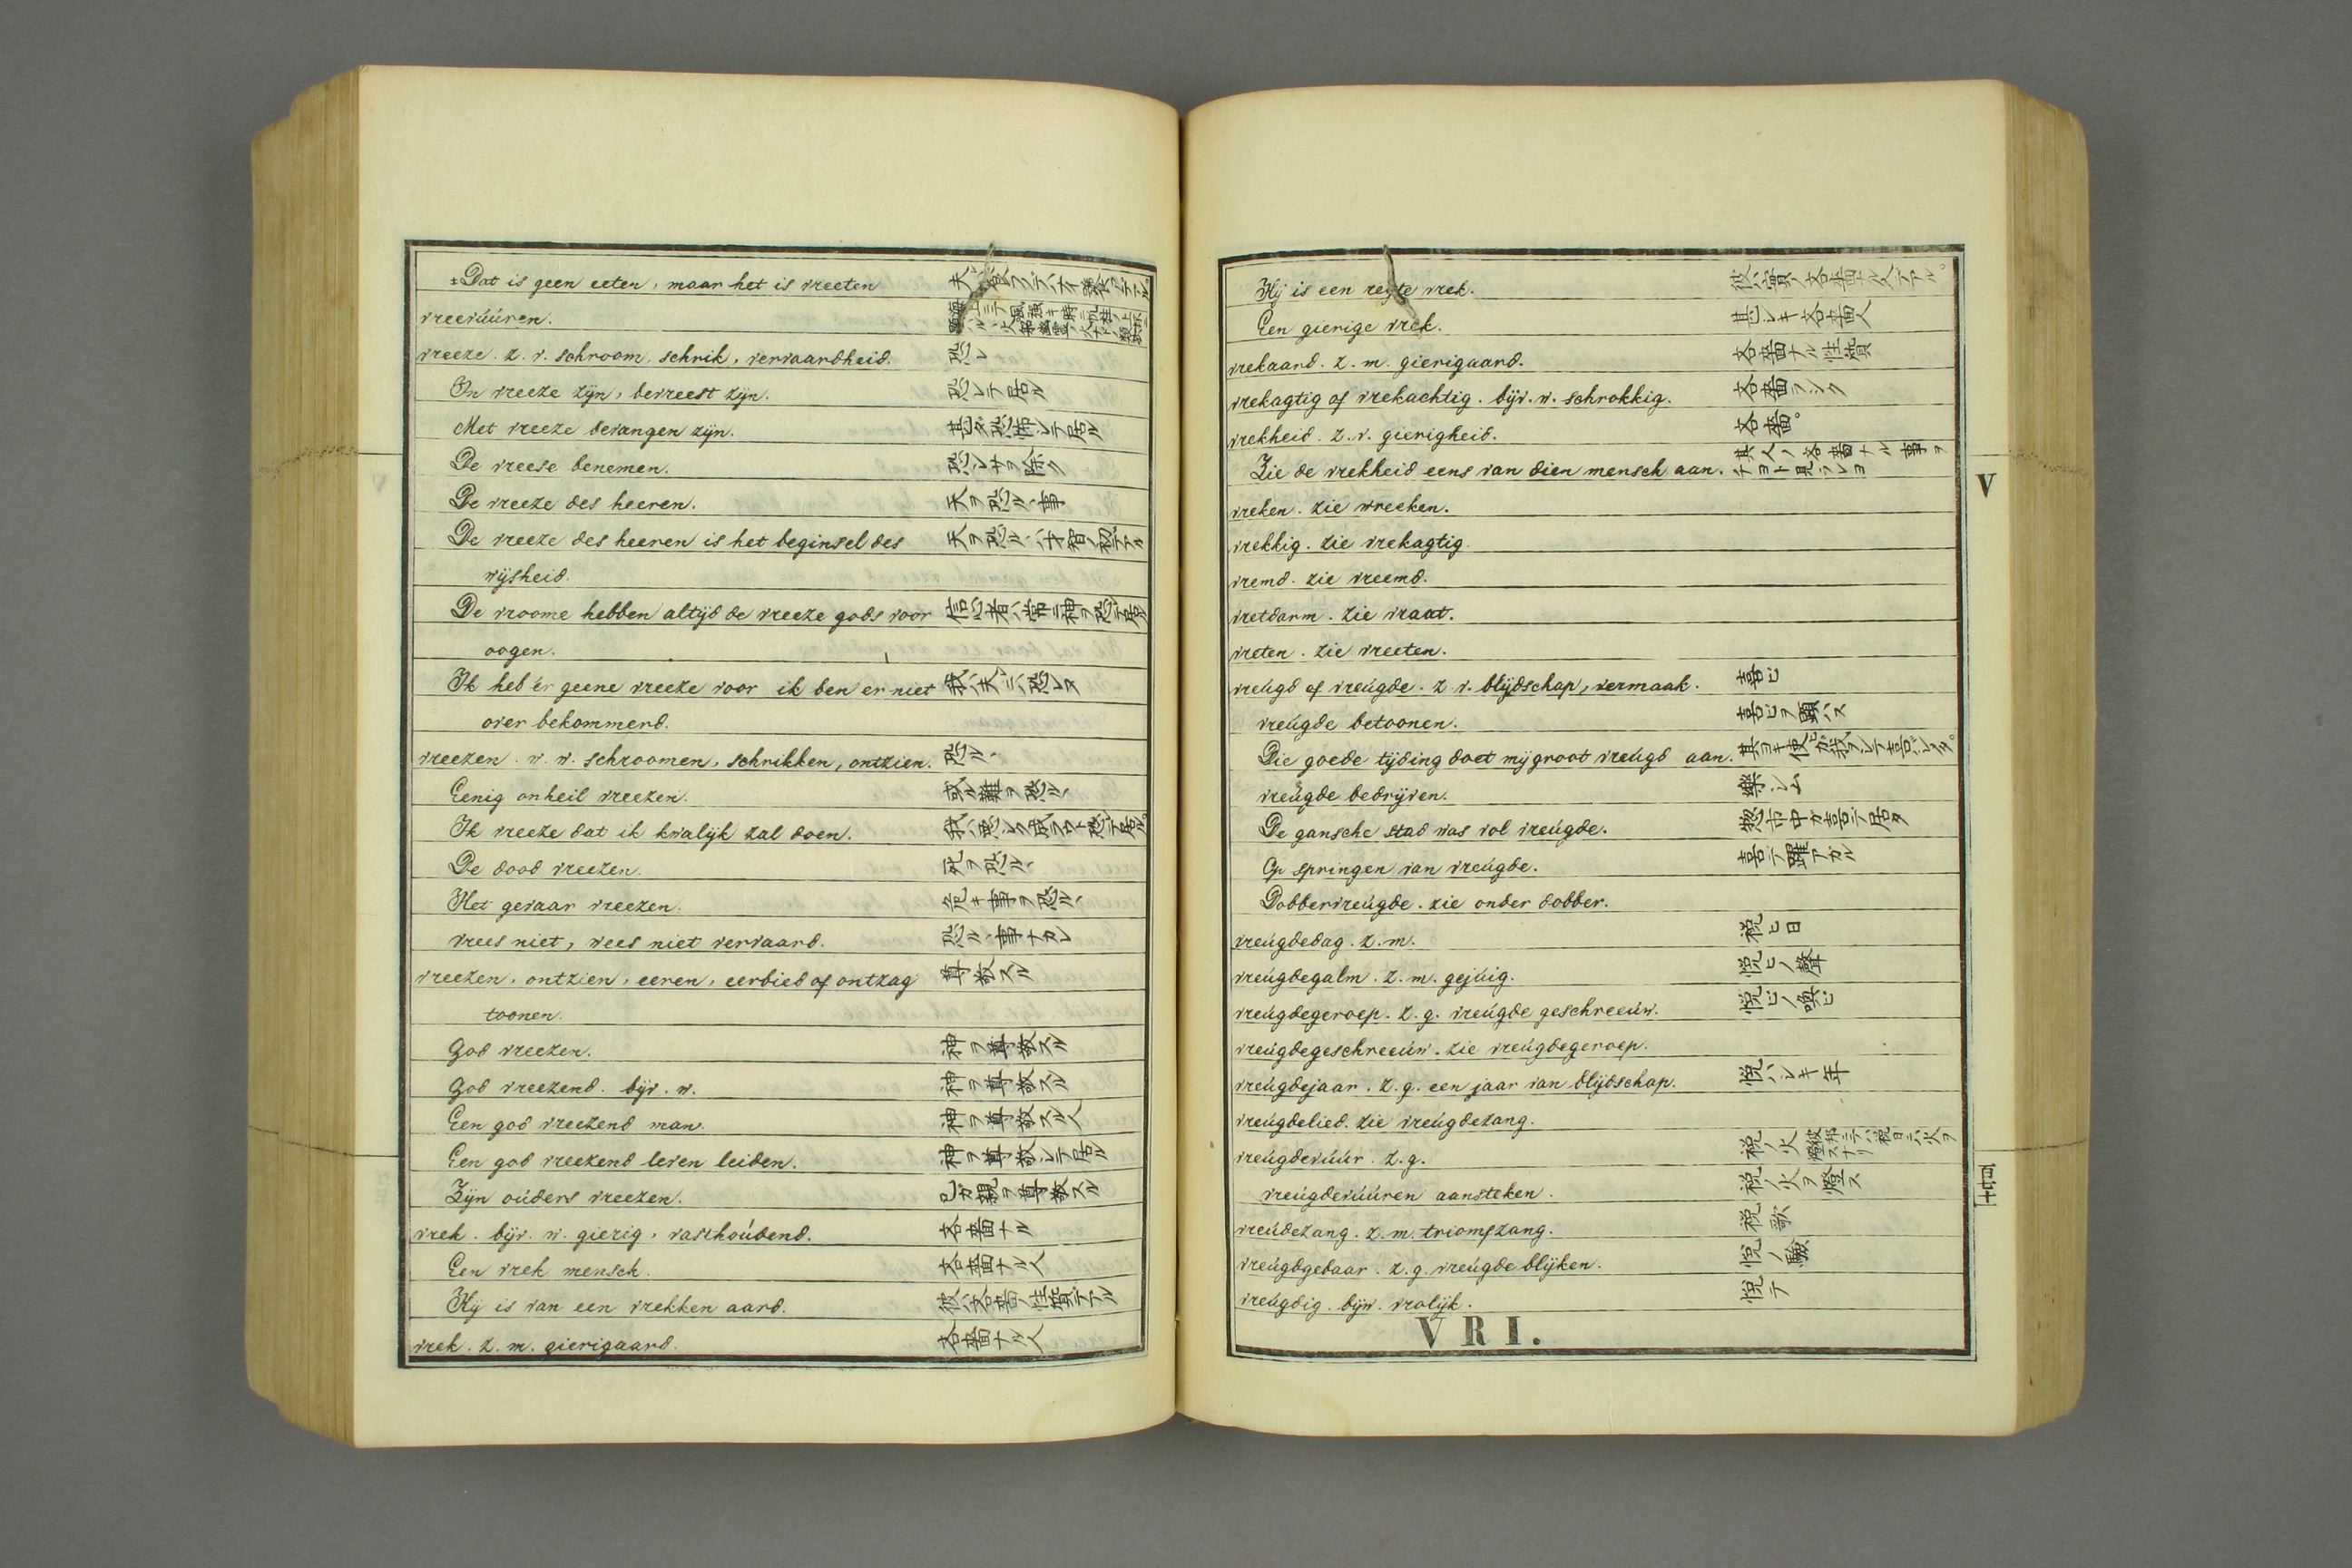 Dat is geen eeten, maar het is vreeten
vreevúúren.
vreeze. z. v. schroom, schrik, vervaardheid. 恐レ
In vreeze zijn, bevreest zijn. 恐レテ居ル
Met vreeze bevangen zijn. 甚タ恐怖レテ居ル
De vreese benemen. 恐レサヲ除ク
De vreeze des heeren. 天ヲ恐ルヽ事
De vreeze des heeren is het beginsel des 天ヲ恐ルヽハ才智ノ初テアル
wijsheid.
De vroome hebben altijd de vreeze gods voor 信心者ハ常ニ神ヲ恐テ居ル
oogen.
Ik heb ér geene vreeze voor ik ben er niet 我ハ夫ニハ恐レヌ
over bekommerd.
vreezen. w. w. schroomen, schrikken, ontzien. 恐ルヽ
Eenig onheil vreezen. 或ル難ヲ恐ルヽ
Ik vreeze dat ik kwalijk zal doen.
De dood vreezen. 死ヲ恐ルヽ
Het gevaar vreezen. 危キ事ヲ恐ルヽ
vrees niet, wees niet vervaard. 恐ルヽ事ナカレ
vreezen, ontzien, eeren, eerbied of ontzag 尊敬スル
toonen.
God vreezen. 神ヲ尊敬スル
God vreezend. bijv. w. 神ヲ尊敬スル
Een god vreezend man. 神ヲ尊敬スル人
Een god vreezend leven leiden. 神ヲ尊敬シテ居ル
Zijn oúders vreezen. 己カ親ヲ尊敬スル
vrek. bijv. w. gierig, vasthoúdend. 吝嗇ナル
Een vrek mensch. 吝嗇ナル人
Hij is van een vrekken aard. 彼ハ吝嗇ノ性質テアル
vrek. z. m. gierigaard. 吝嗇ナル人
Hij is een regte vrek. 彼ハ實ノ吝嗇ナル人テアル。
Een gierige vrek. 甚シキ吝嗇人
vrekaard. z. m. gierigaard. 吝嗇ナル性質
vrekagtig of vrekachtig. bijv. w. schrokkig. 吝嗇ラシク
vrekheid. z. v. gierigheid. 吝嗇。
Zie de vrekheid eens van dien mensch aan. 其人ノ吝嗇ナル事ヲチヨト見ラレヨ
vreken. zie wreeken.
vrekkig. zie vrekagtig.
vremd. zie vreemd.
vretdarm. zie vraat.
vreten. zie vreeten.
vreúgd of vreúgde. z. v. blijdschap, vermaak. 喜ビ
vreúgde betoonen. 喜ビヲ顕ハス
Die goede tijding doet mij groot vreúgd aan.
vreúgde bedrijven. 樂シム
De gansche stad was vol vreúgde. 惣市中カ喜テ居タ
Op springen van vreúgde. 喜テ躍アガル
Dobbervreúgde. zie onder dobber.
vreúgdedag. z. m. 祝ヒ日
vreúgdegalm. z. m. gejúig. 悦ヒノ聲
vreúgdegeroep. z. g. vreúgde geschreeúw. 悦ビノ喚ビ
vreúgdegeschreeúw. zie vreúgdegeroep.
vreúgdejaar. z. g. een jaar van blijdschap. 悦ハシキ年
vreúgdelied. zie vreúgdezang.
vreúgdevúúr. z. g. 祝ノ火 彼邦ニテハ祝日ニハ火ヲ燈スナリ
vreúgdevúúren aansteken. 祝ノ火ヲ燈ス
vreúdezang. z. m. triomfzang. 祝歌
vreúgdgebaar. z. g. vreúgde blijken. 悦ノ驗
vreúgdig. bijw. vrolijk. 悦テ
VRI.
V